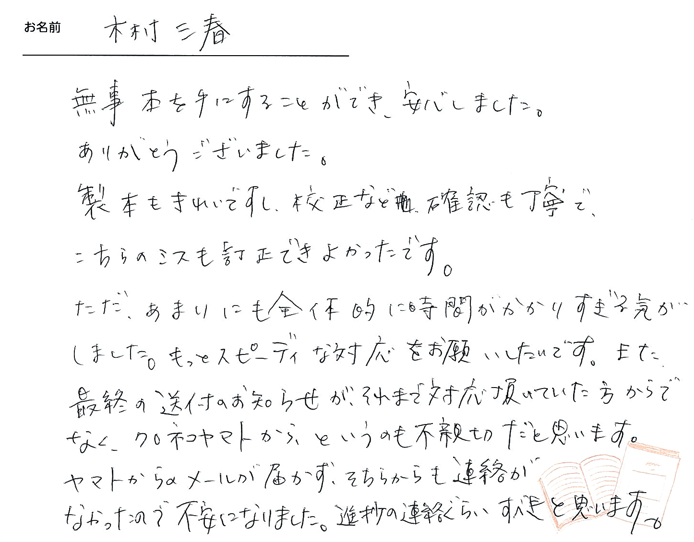 お名前 木村 三春
無事 本を手にすることができ、安心しました。
ありがとうございました。
製本もきれいですし、校正など 確認も丁寧で、
こちらのミスも訂正できよかったです。
ただ、あまりにも全体的に時間がかかりすぎる気が
しました。もっとスピーディな対応をお願いしたいです。また、
最終の送付のお知らせが、それまで対応頂いていた方からで
なく、クロネコヤマトから、というのも不親切だと思います。
ヤマトからのメールが届かず、そちらからも連絡が
なかったので不安になりました。進捗の連絡ぐらい、すべきと思います。